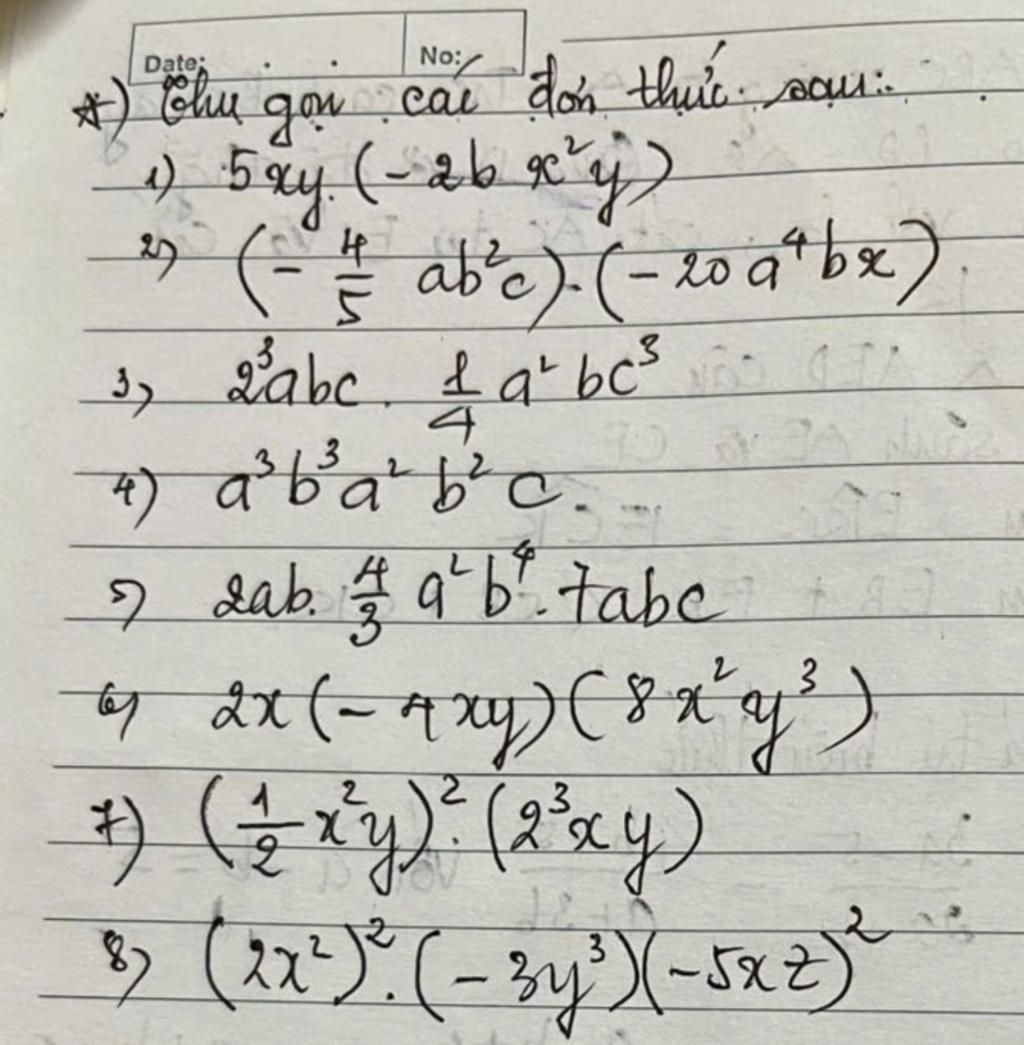 Date: No:
*) Thu gọn các đơn thức sau:
1) 5xy.(-2b x²y)
2) (-4/5 ab²c).(-20a⁴bx)
3) 2³abc . 1/4 a²bc³
4) a³b³a²b²c
5) 2ab. 4/3 a²b⁴.7abc
6) 2x(-4xy)(8x²y³)
7) (1/2 x²y)².(2³xy)
8) (2x²)².(-3y³)(-5xz)²